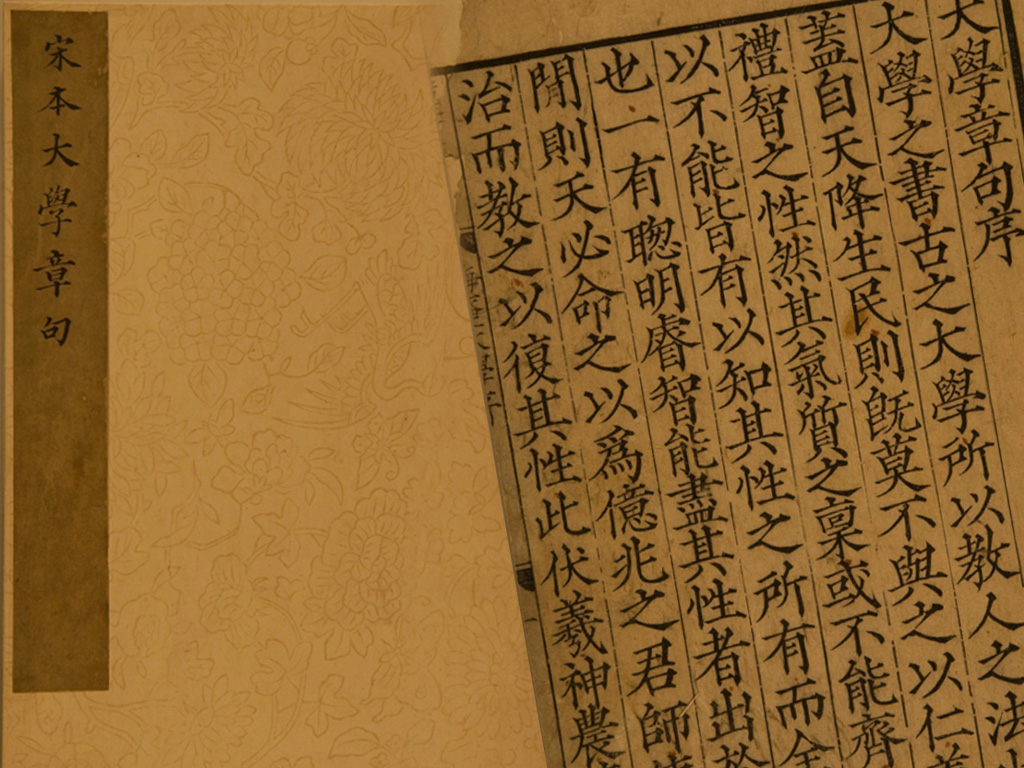 大學章句序
大學之書古之大學所以教人之法
蓋自天降生民則旣莫不與之以仁義
禮智之性然其氣質之稟或不能齊
以不能皆有以知其性之所有而全
也一有聦明睿智能盡其性者出於
閒則天必命之以爲億兆之君師
治而教之以復其性此伏羲神農
宋本大學章句